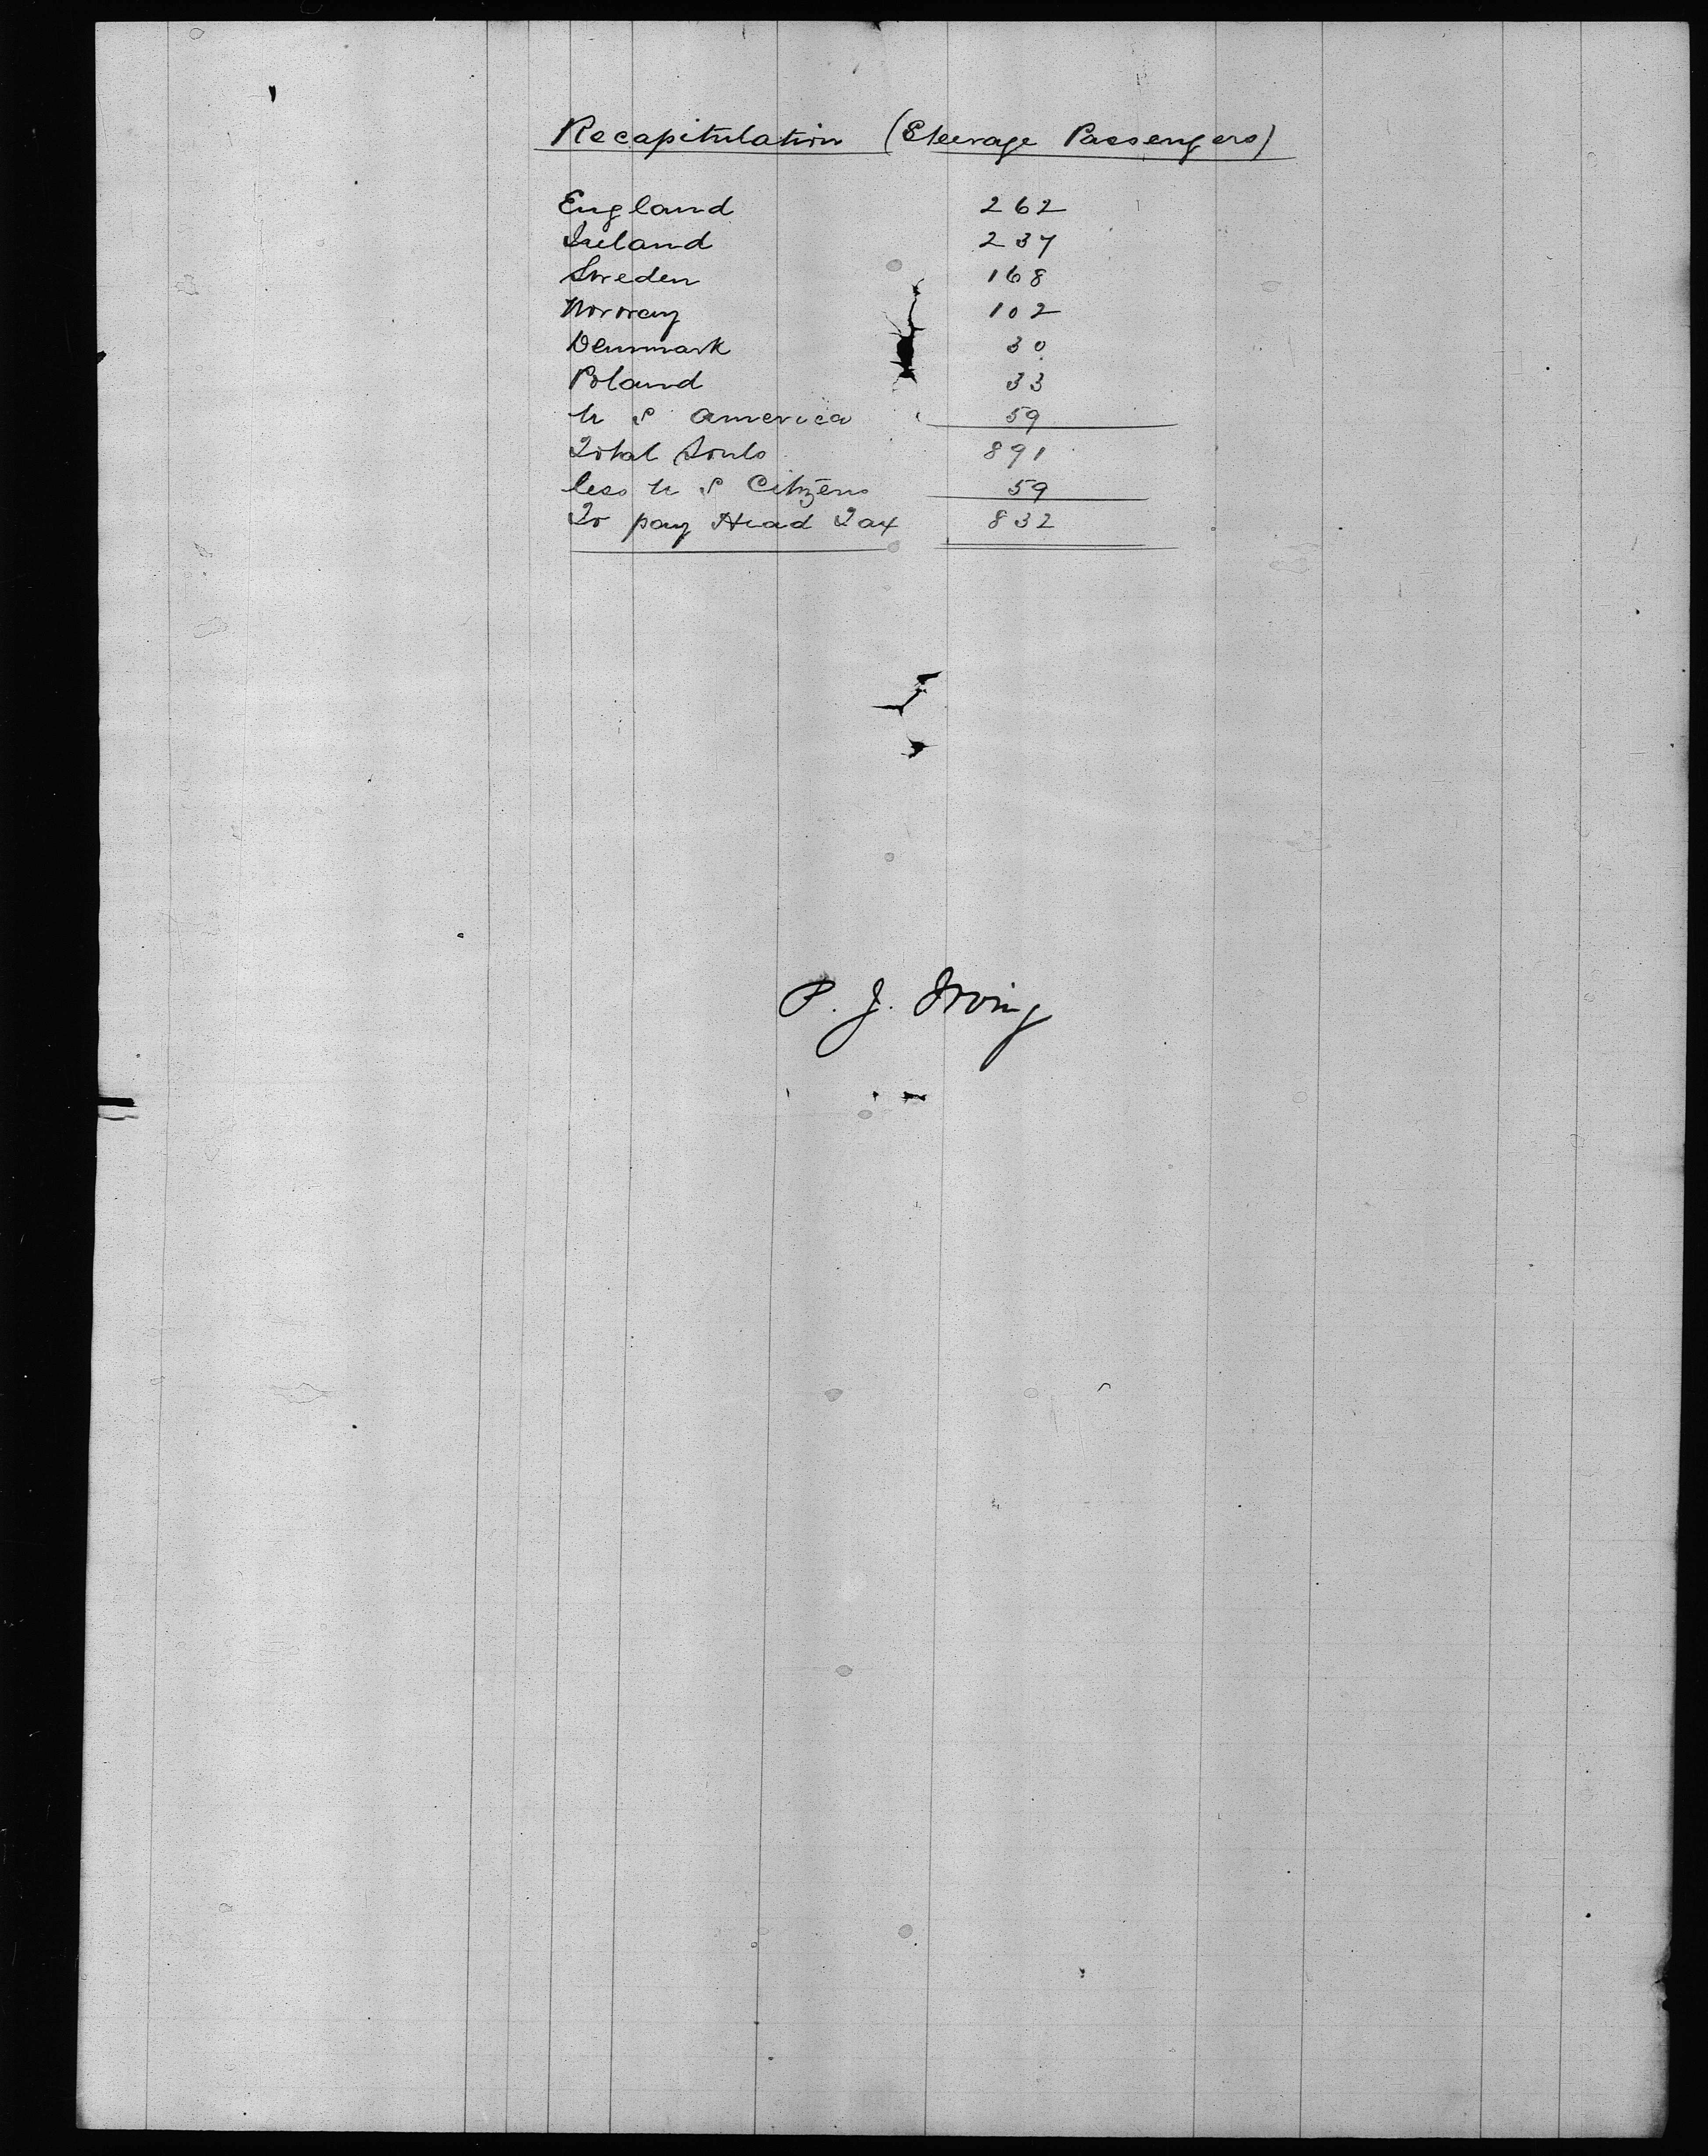 Recapitulation (Steerage Passengers)
England 262
Ireland 237
Sweden 168
Norway 102
Denmark 30
Poland 33
U S America 59
Total Souls 891
less U S Citizens 59
To pay Head Tax 832
P. J. Irving